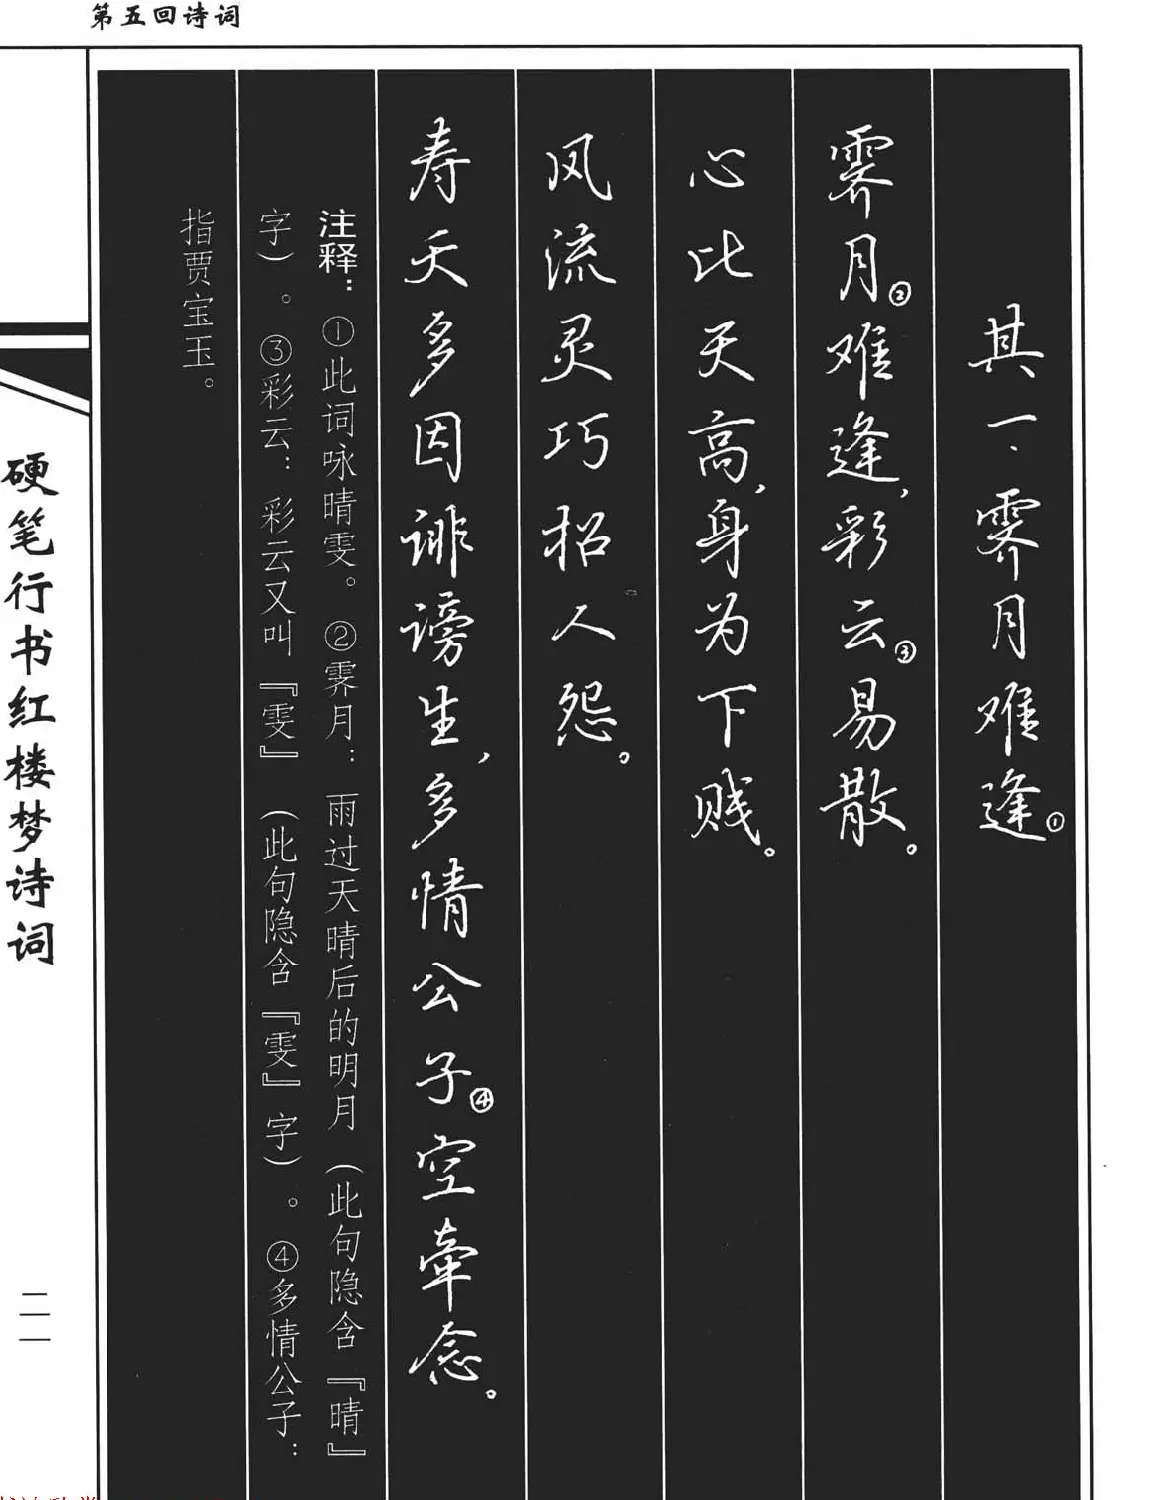 第五回诗词
其一、霁月难逢①
霁月②难逢,彩云③易散。
心比天高,身为下贱。
风流灵巧招人怨。
寿夭多因诽谤生,多情公子④空牵念。
注释：①此词咏晴雯。②霁月：雨过天晴后的明月（此句隐含『晴』
字）。③彩云：彩云又叫『雯』（此句隐含『雯』字）。④多情公子：
指贾宝玉。
硬笔行书红楼梦诗词
二一